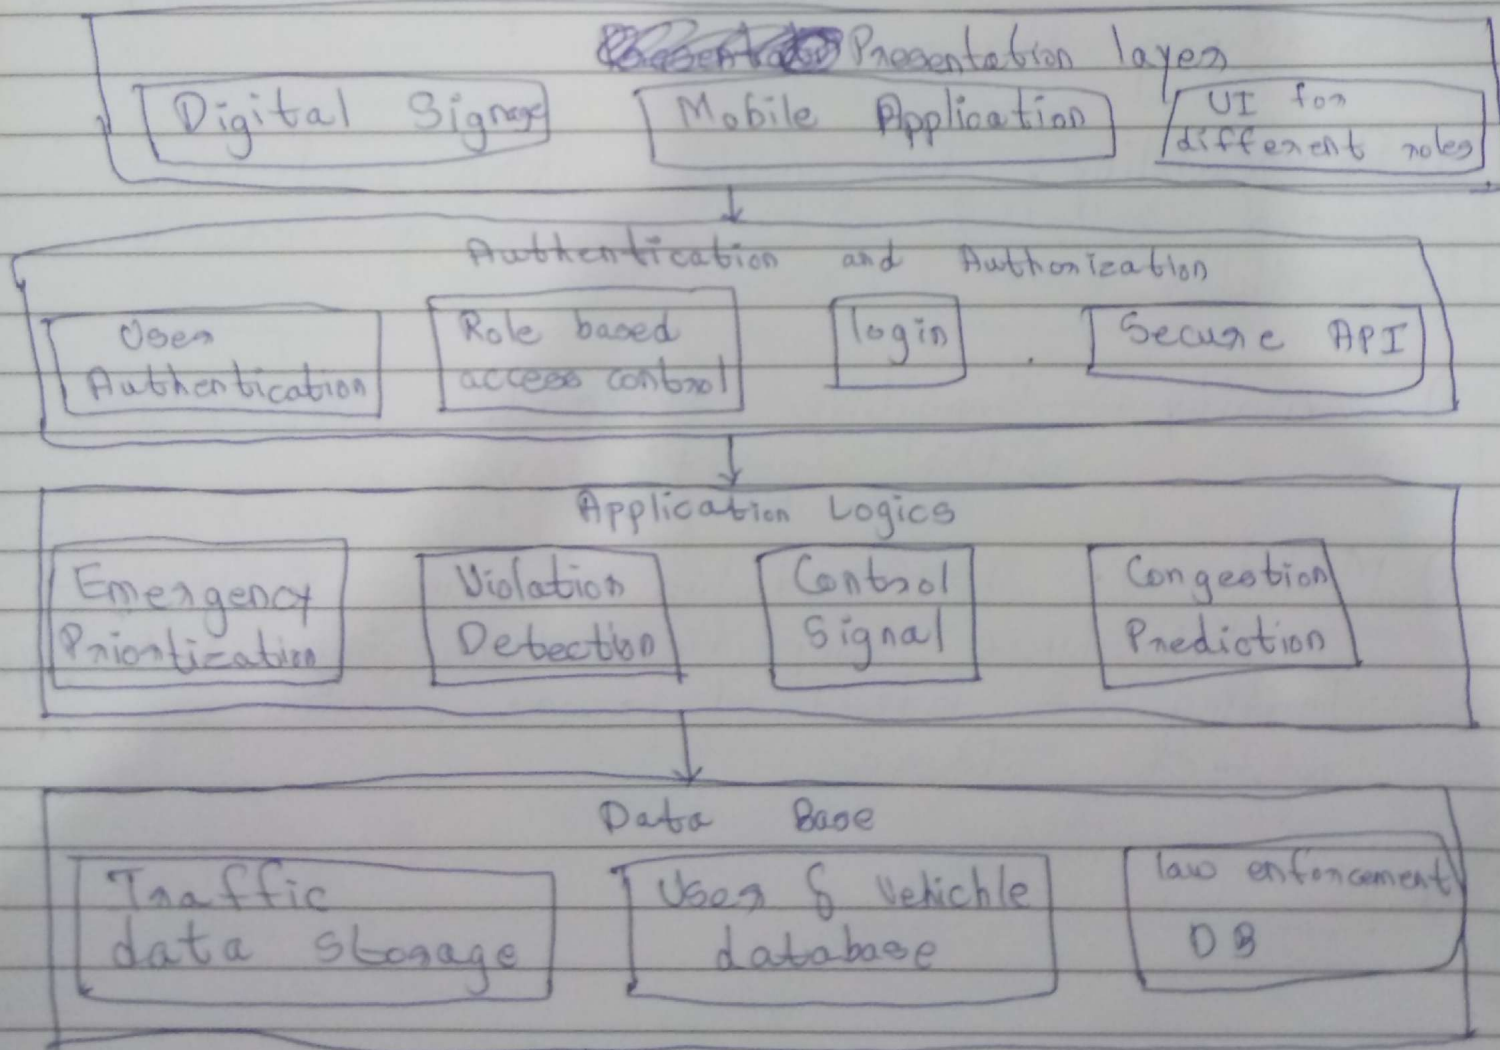 Presentation layer
Digital Signage
Mobile Application
UI for
different roles
Authentication and Authorization
User
Authentication
Role based
access control
login
Secure API
Application Logics
Emergency
Priortization
Violation
Detection
Control
Signal
Congestion
Prediction
Data Base
Traffic
data storage
User & Vehichle
database
law enforcement
DB